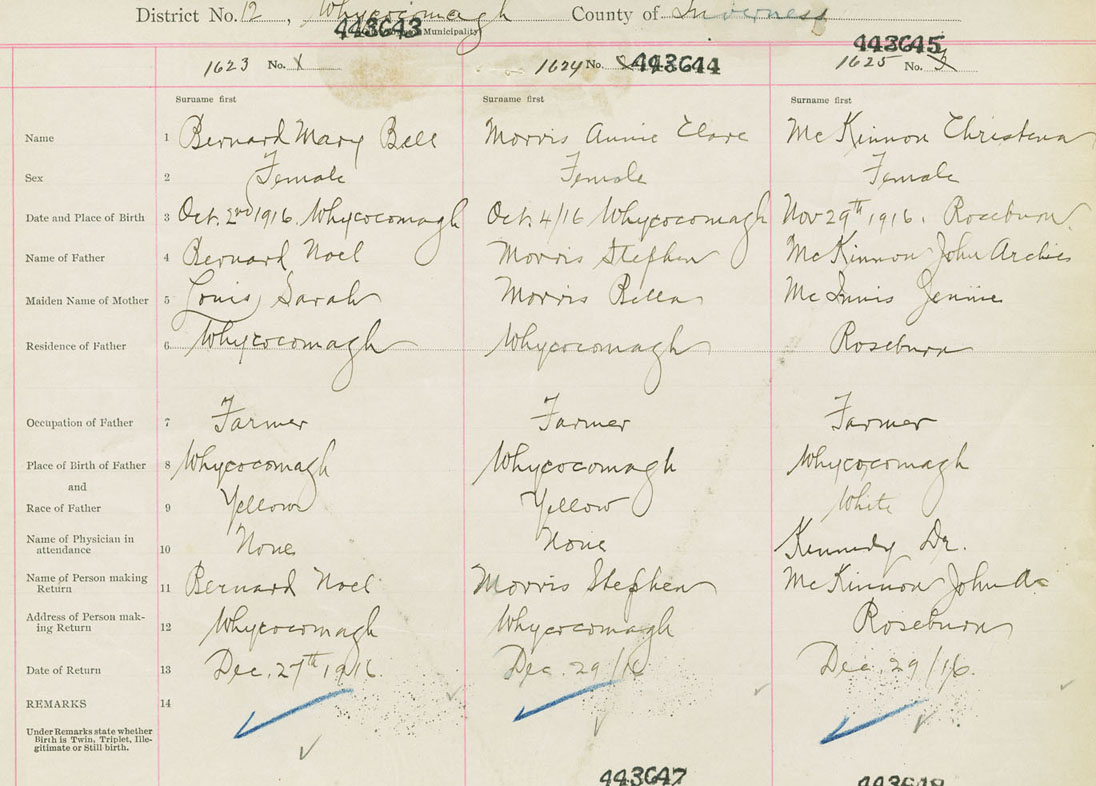 District No. 12, Whycocomagh County of Inverness
443643 Municipality 443645
1623 No. 1624 No. 443644 1625 No. 3
Surname first Surname first Surname first
Name 1 Bernard Mary Bell Morris Annie Clare McKinnon Christena
Sex 2 Female Female Female
Date and Place of Birth 3 Oct. 2nd 1916. Whycocomagh Oct. 4/16 Whycocomagh Nov 29th 1916. Roseburn
Name of Father 4 Bernard Noel Morris Stephen McKinnon John Archie
Maiden Name of Mother 5 Louis Sarah Morris Bella McInnis Jennie
Residence of Father 6 Whycocomagh Whycocomagh Roseburn
Occupation of Father 7 Farmer Farmer Farmer
Place of Birth of Father 8 Whycocomagh Whycocomagh Whycocomagh
and
Race of Father 9 Yellow Yellow White
Name of Physician in
attendance 10 None None Kennedy Dr.
Name of Person making
Return 11 Bernard Noel Morris Stephen McKinnon John A
Address of Person mak-
ing Return 12 Whycocomagh Whycocomagh Roseburn
Date of Return 13 Dec. 27th 1916. Dec. 29/16 Dec. 29/16.
REMARKS 14
Under Remarks state whether
Birth is Twin, Triplet, Ille-
gitimate or Still birth.
443647 443648